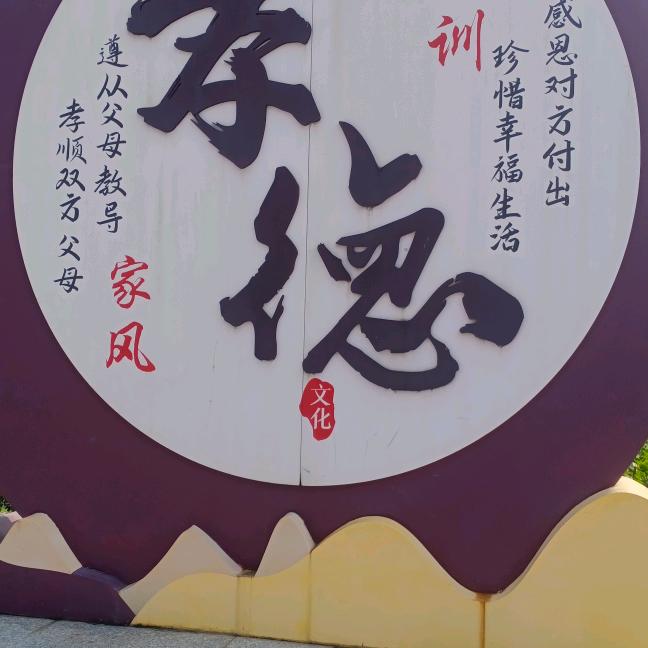 训
感恩对方付出
珍惜幸福生活
孝德
文化
家风
遵从父母教导
孝顺双方父母